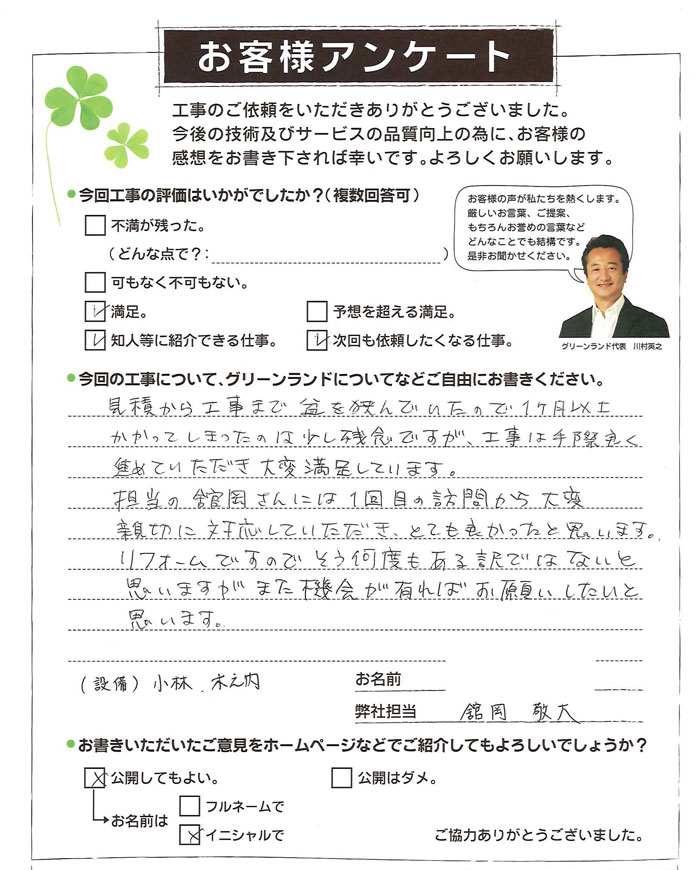 お客様アンケート
工事のご依頼をいただきありがとうございました。
今後の技術及びサービスの品質向上の為に、お客様の
感想をお書き下されば幸いです。よろしくお願いします。
●今回工事の評価はいかがでしたか？（複数回答可）
不満が残った。
（どんな点で？：　）
可もなく不可もない。
満足。　予想を超える満足。
知人等に紹介できる仕事。　次回も依頼したくなる仕事。
お客様の声が私たちを熱くします。
厳しいお言葉、ご提案、
もちろんお誉めの言葉など
どんなことでも結構です。
是非お聞かせください。
グリーンランド代表　川村英之
●今回の工事について、グリーンランドについてなどご自由にお書きください。
見積から工事まで盆を挟んでいたので1ヶ月以上
かかってしまったのは少し残念ですが、工事は手際良く
進めていただき大変満足しています。
担当の舘岡さんには1回目の訪問から大変
親切に対応していただき、とても良かったと思います。
リフォームですのでそう何度もある訳ではないと
思いますがまた機会が有ればお願いしたいと
思います。
（設備）小林．木之内
お名前
弊社担当　舘岡　敬大
●お書きいただいたご意見をホームページなどでご紹介してもよろしいでしょうか？
公開してもよい。　公開はダメ。
お名前は
フルネームで
イニシャルで
ご協力ありがとうございました。